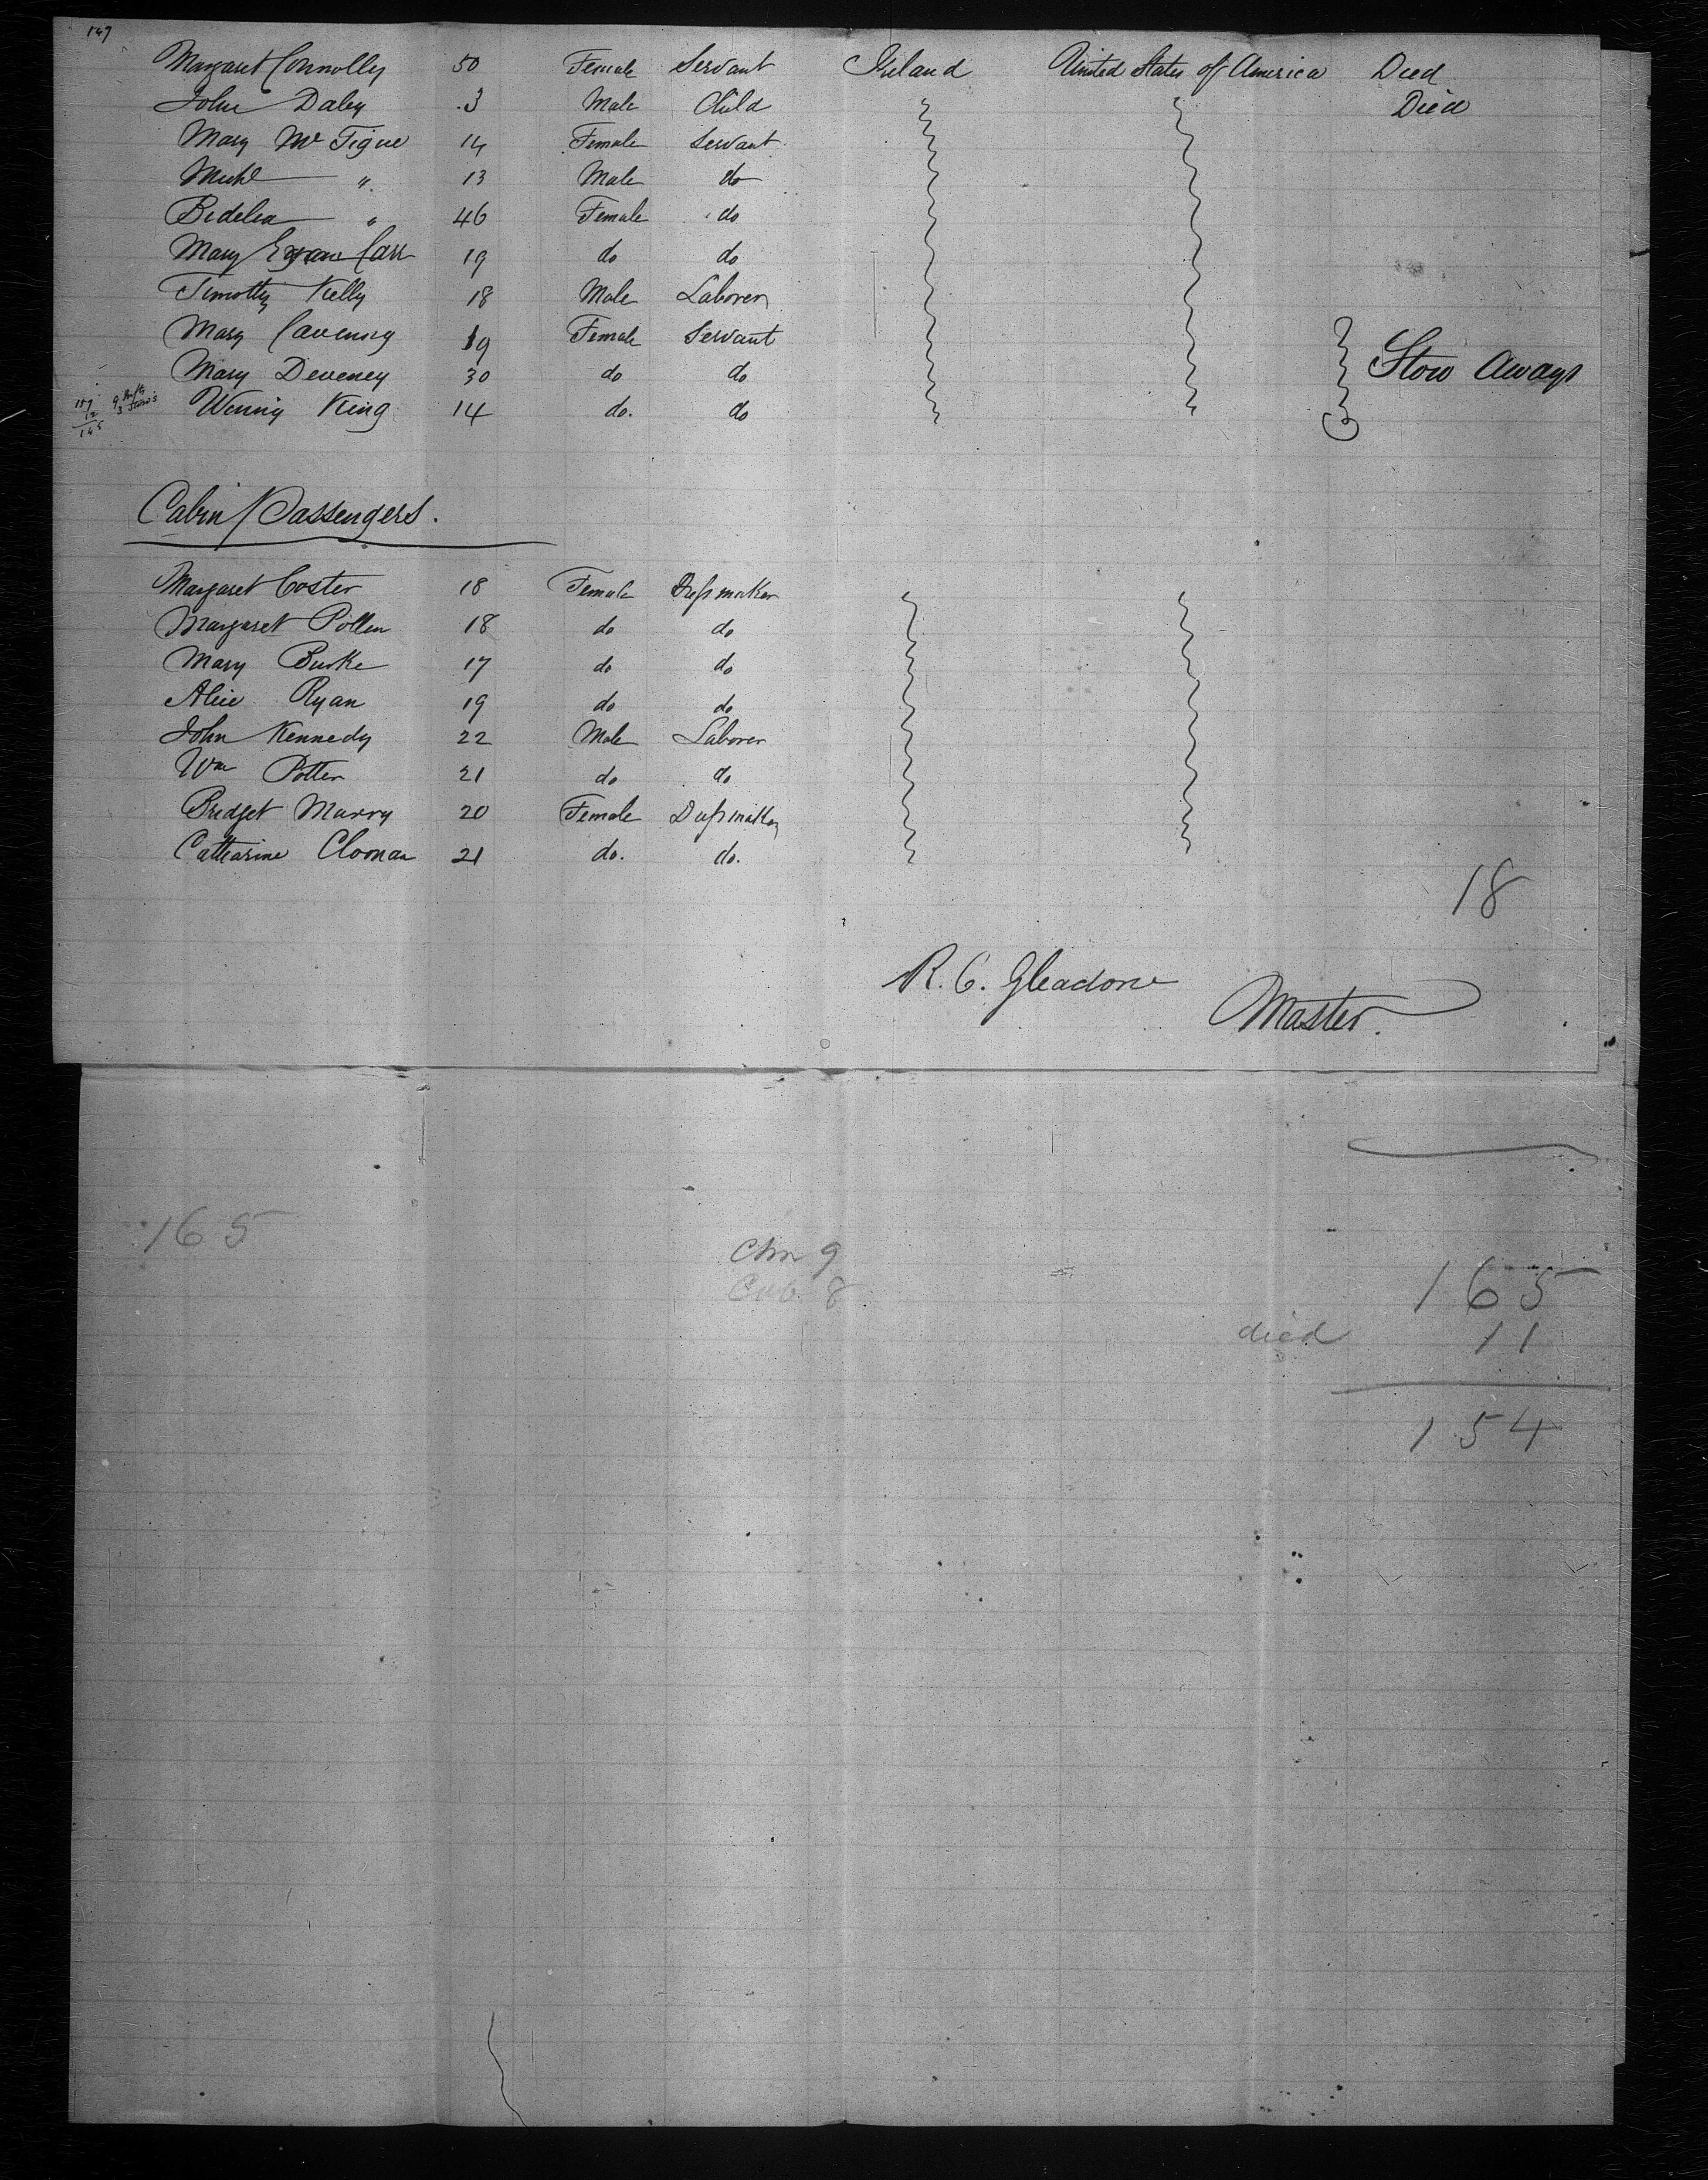 147
Margaret Connolly 50 Female Servant Ireland United States of America Died
John Daley 3 Male Child Died
Mary Mc Tigue 14 Female Servant
Michl " 13 Male do
Bedelia " 46 Female do
Mary Carr 19 do do
Timothy Kelly 18 Male Laborer
Mary Caveney 19 Female Servant
Mary Deveney 30 do do Stow Aways
Winny King 14 do. do
Cabin Passengers.
Margaret Coster 18 Female Dressmaker
Margaret Pollen 18 do do
Mary Burke 17 do do
Alice Ryan 19 do do
John Kennedy 22 Male Laborer
Wm Potter 21 do do
Bridget Murry 20 Female Dressmaker
Catharine Cloonan 21 do. do.
18
R. C. Gleadow
Master.
165
Chn 9
Cab. 8
165
died 11
154